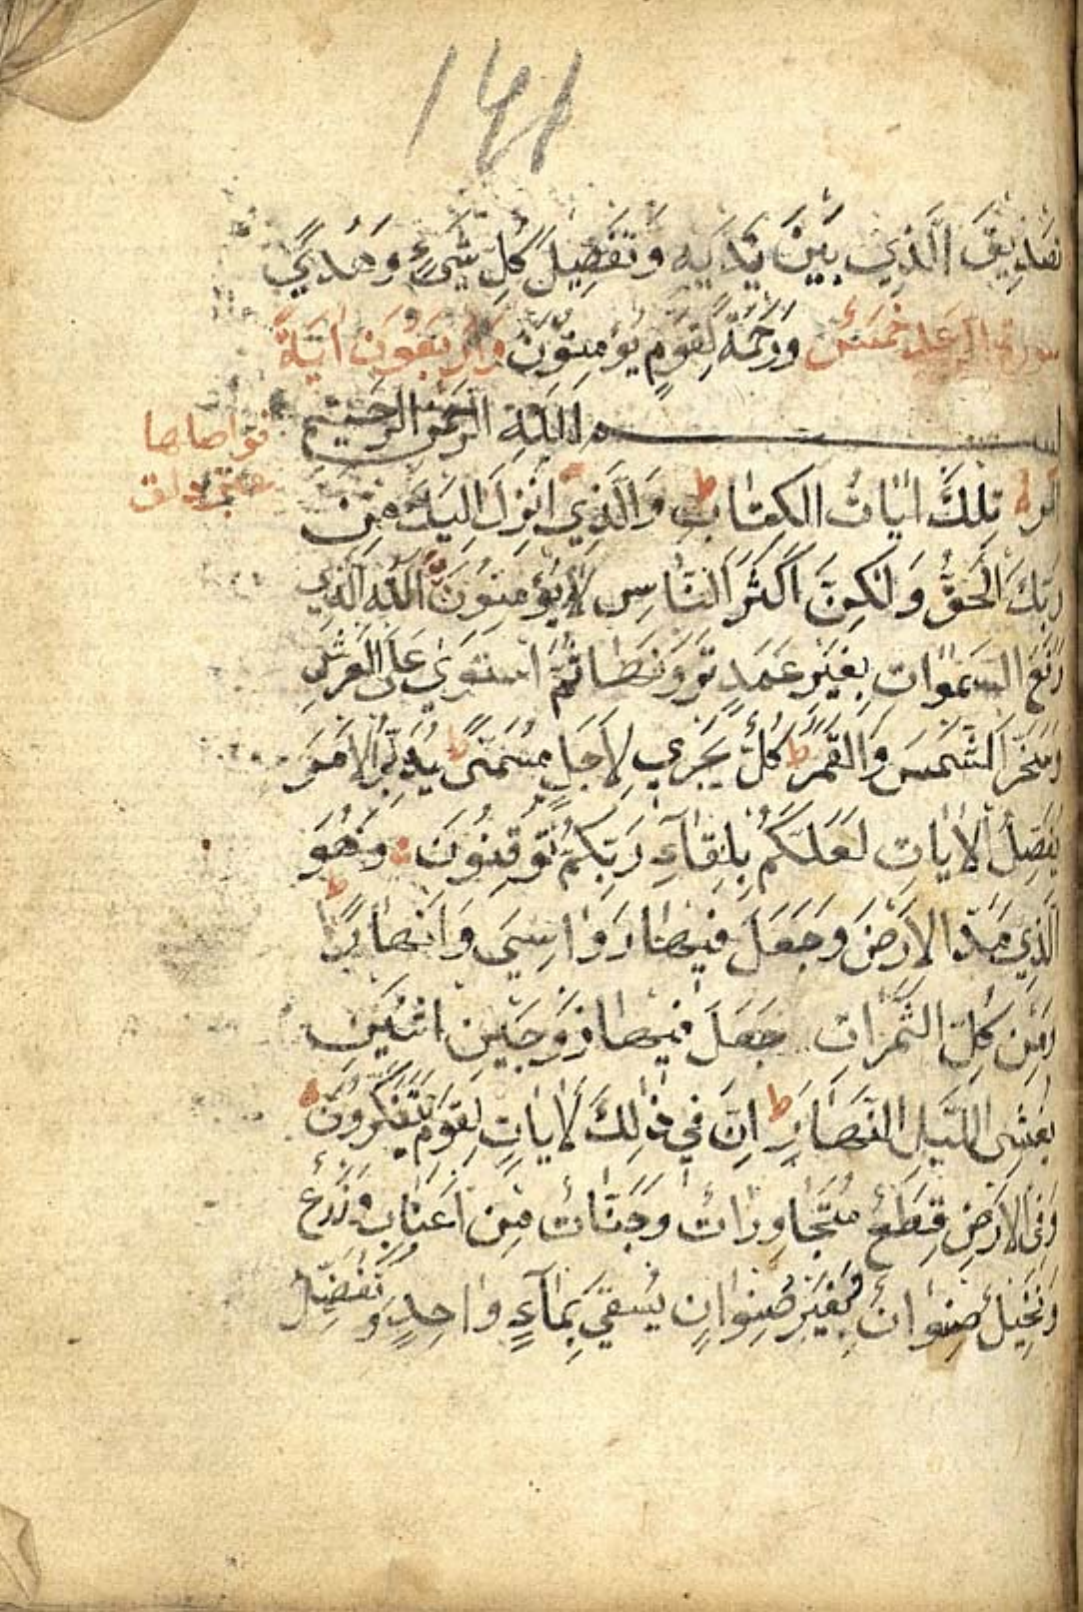 تَصْدِيقَ الَّذِي بَيْنَ يَدَيْهِ وَتَفْصِيلَ كُلِّ شَيْءٍ وَهُدًي
سورة الرعد خمس وَرَحْمَةً لِقَوْمٍ يُؤْمِنُونَ وَاَرْبَعُونَ اٰيَةً
بسم اللّٰهِ الرَّحْمٰنِ الرَّحِيمِ
الٓمرٰ تِلْكَ اٰيَاتُ الْكِتَابِ ط وَالَّذِي اُنْزِلَ اِلَيْكَ مِنْ
رَبِّكَ الْحَقُّ وَلٰكِنَّ اَكْثَرَ النَّاسِ لَا يُؤْمِنُونَ اَللّٰهُ الَّذِي
رَفَعَ السَّمٰوَاتِ بِغَيْرِ عَمَدٍ تَرَوْنَهَا ثُمَّ اسْتَوٰي عَلَى الْعَرْشِ
وَسَخَّرَ الشَّمْسَ وَالْقَمَرَ ط كُلٌّ يَجْرِي لِاَجَلٍ مُسَمًّى ط يُدَبِّرُ الْاَمْرَ
يُفَصِّلُ الْاٰيَاتِ لَعَلَّكُمْ بِلِقَآءِ رَبِّكُمْ تُوقِنُونَ وَهُوَ
الَّذِي مَدَّ الْاَرْضَ وَجَعَلَ فِيهَا رَوَاسِيَ وَاَنْهَارًا ط
وَمِنْ كُلِّ الثَّمَرَاتِ جَعَلَ فِيهَا زَوْجَيْنِ اثْنَيْنِ
يُغْشِى اللَّيْلَ النَّهَارَ ط اِنَّ فِي ذٰلِكَ لَاٰيَاتٍ لِقَوْمٍ يَتَفَكَّرُونَ
وَفِى الْاَرْضِ قِطَعٌ مُتَجَاوِرَاتٌ وَجَنَّاتٌ مِنْ اَعْنَابٍ وَزَرْعٌ
وَنَخِيلٌ صِنْوَانٌ وَغَيْرُ صِنْوَانٍ يُسْقٰي بِمَآءٍ وَاحِدٍ وَنُفَضِّلُ